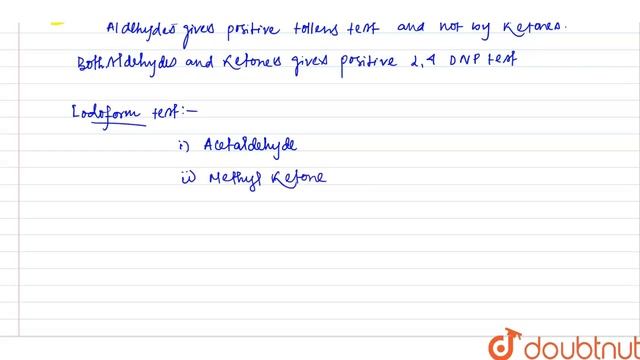 Aldehydes gives positive tollens test and not by Ketones.
Both Aldehydes and Ketones gives positive 2,4 DNP test
Iodoform test:-
i) Acetaldehyde
ii) Methyl Ketone
doubtnut